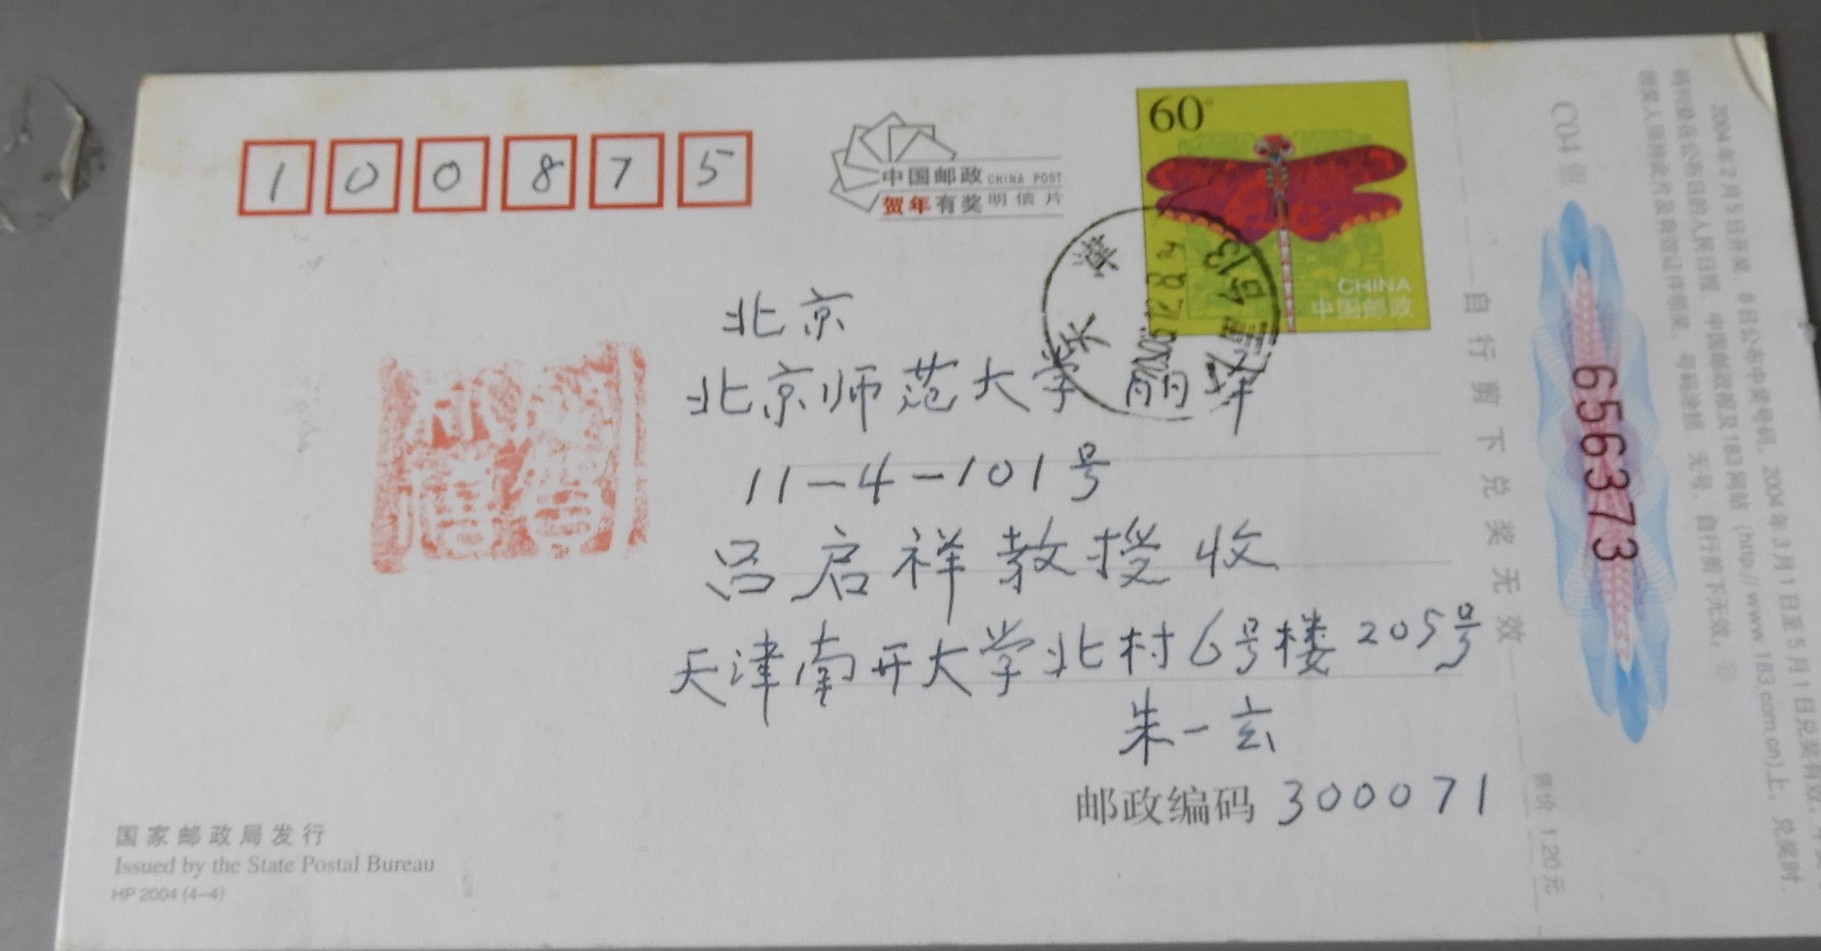 100875
中国邮政 CHINA POST
贺年有奖明信片
60
CHINA
中国邮政
天津
北京
北京师范大学 丽泽
11-4-101号
吕启祥教授收
天津南开大学北村6号楼205号
朱一玄
邮政编码 300071
国家邮政局发行
Issued by the State Postal Bureau
HP 2004 (4-4)
自行剪下兑奖无效
656373
售价 1.20元
2004年2月5日开奖，6日公布中奖号码，2004年3月1日至5月1日兑奖有效。
(http://www.183.com.cn)上，兑奖时